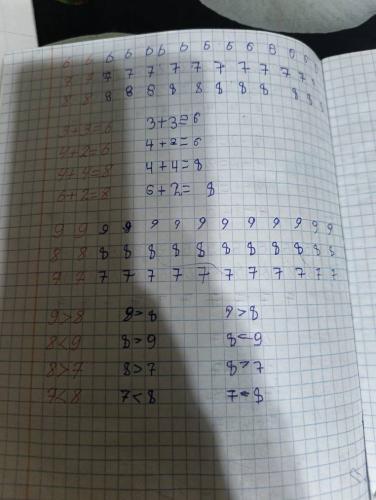 6 6 6 6 6 6 6 6 6 6 8 6 6
7 7 7 7 7 7 7 7 7 7 7 7 7
8 8 8 8 8 8 8 8 8 8 8 8
3+3=6 3+3=6
4+2=6 4+2=6
4+4=8 4+4=8
6+2=8 6+2= 8
9 9 9 9 9 9 9 9 9 9 9 9 9
8 8 8 8 8 8 8 8 8 8 8 8 8
7 7 7 7 7 7 7 7 7 7 7 7 7
9>8 9>8 9>8
8<9 8>9 8<9
8>7 8>7 8>7
7<8 7<8 7<8